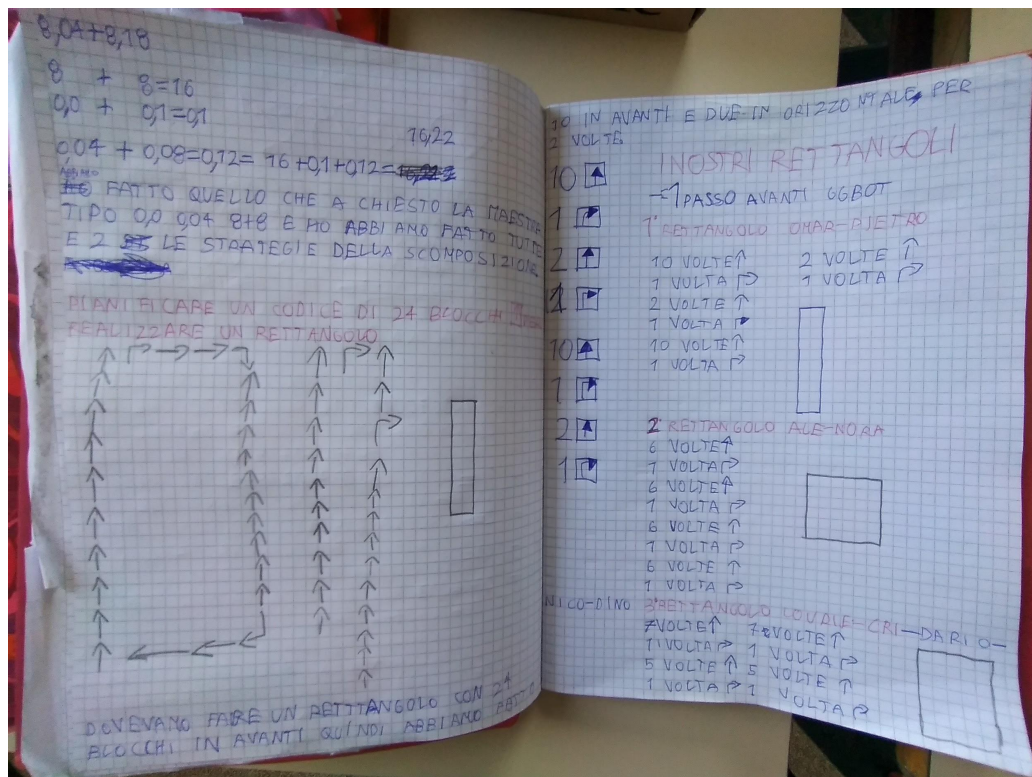 8,04+8,18
8 + 8=16
0,0 + 0,1=0,1
16,22
0,04 + 0,08=0,12= 16+0,1+0,12=
ABBIAMO
FATTO QUELLO CHE A CHIESTO LA MAESTRA
TIPO 0,0 0,04 8+8 E MO ABBIAMO FATTO TUTTE
E 2 LE STRATEGIE DELLA SCOMPOSIZIONE
PIANIFICARE UN CODICE DI 24 BLOCCHI
REALIZZARE UN RETTANGOLO
DOVEVAMO FARE UN RETTTANGOLO CON 24
BLOCCHI IN AVANTI QUINDI ABBIAMO
10 IN AVANTI E DUE IN ORIZZONTALE, PER
2 VOLTE
10 ↑
1 ↱
2 ↑
1 ↱
10 ↑
1 ↱
2 ↑
1 ↱
I NOSTRI RETTANGOLI
1 PASSO AVANTI GGBOT
1° RETTANGOLO OMAR-PIETRO
10 VOLTE↑ 2 VOLTE ↑
1 VOLTA ↱ 1 VOLTA ↱
2 VOLTE ↑
1 VOLTA ↱
10 VOLTE↑
1 VOLTA ↱
2° RETTANGOLO ALE-NORA
6 VOLTE↑
1 VOLTA↱
6 VOLTE↑
1 VOLTA ↱
6 VOLTE ↑
1 VOLTA ↱
6 VOLTE ↑
1 VOLTA ↱
NICO-DINO 3°RETTANGOLO CRI-DARIO-
7VOLTE↑ 7 VOLTE↑
1 VOLTA↱ 1 VOLTA ↱
5 VOLTE ↑ 5 VOLTE ↑
1 VOLTA ↱ 1 VOLTA ↱